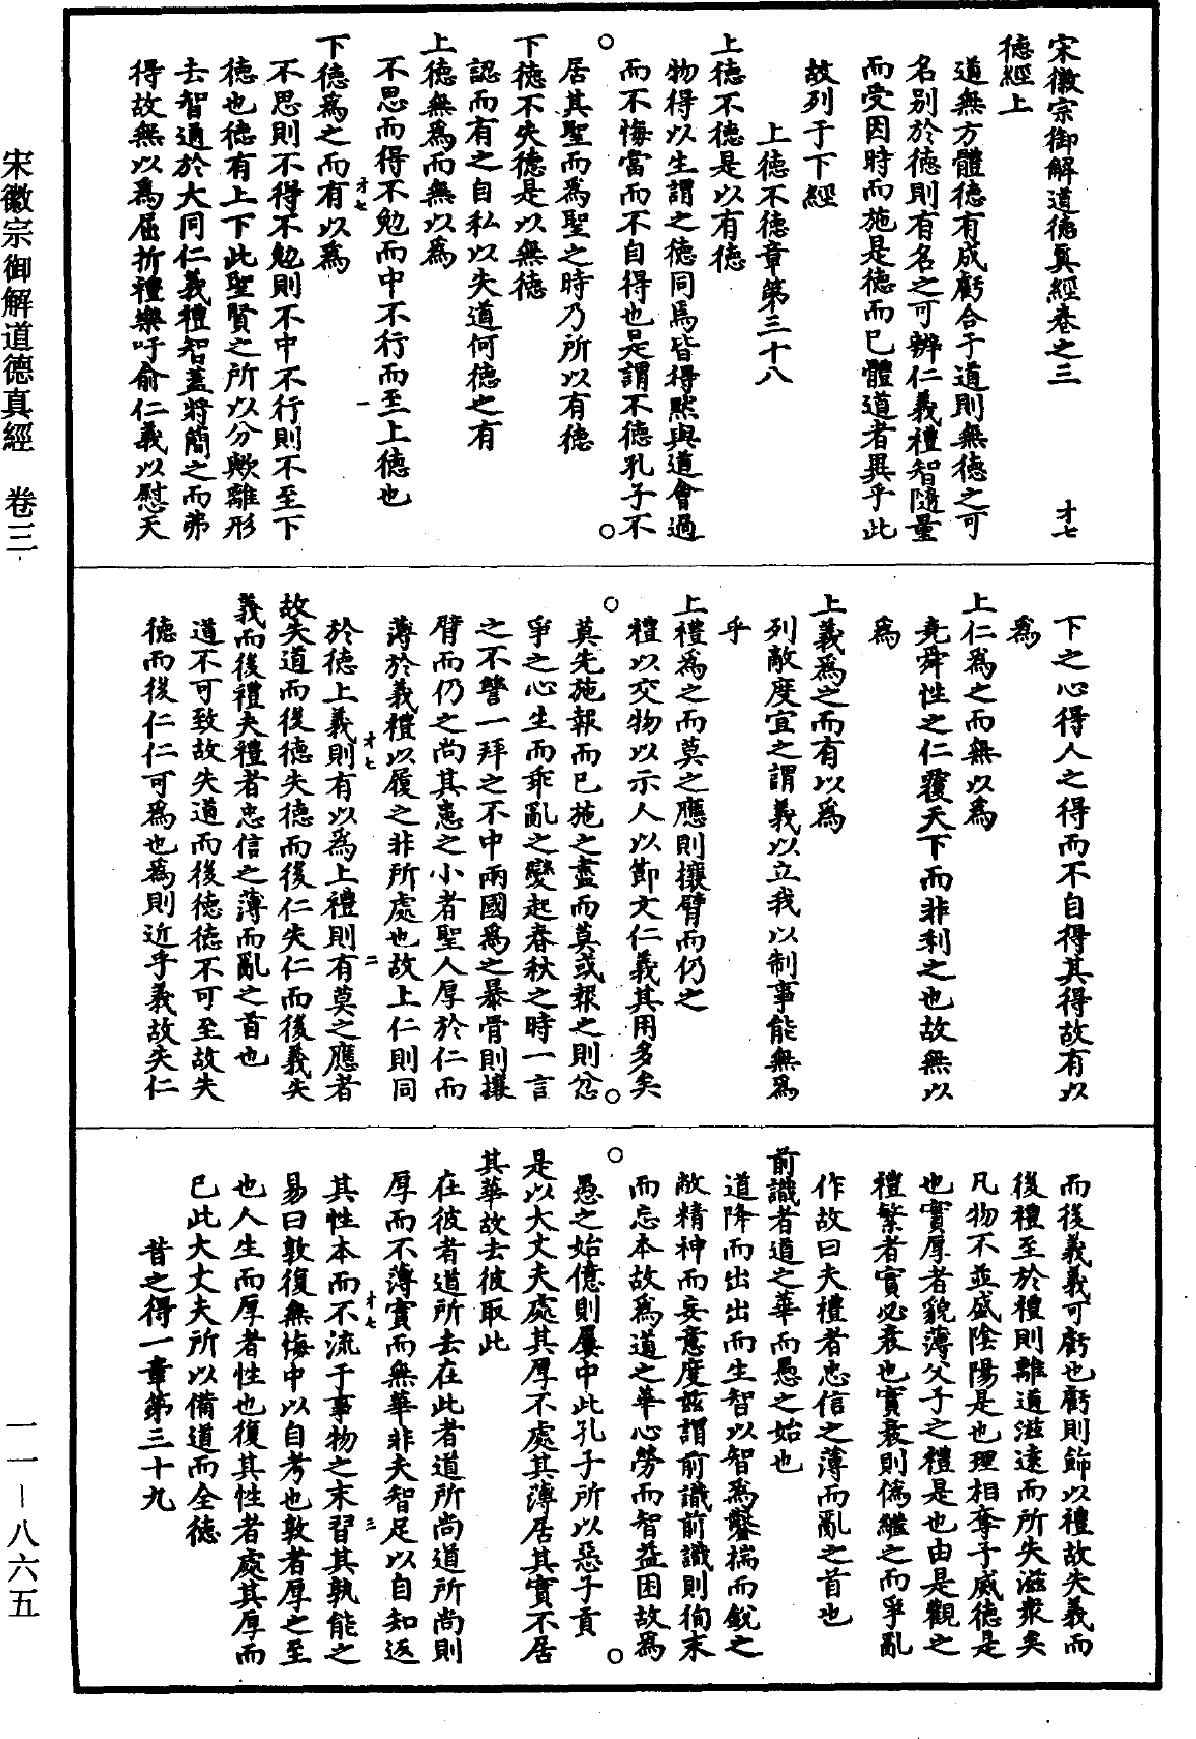 宋徽宗御解道德真經卷之三
才七
德經上
道無方體德有成虧合于道則無德之可
名別於德則有名之可辨仁義禮智隨量
而受因時而施是德而已體道者異乎此
故列于下經
上德不德章第三十八
上德不德是以有德
物得以生謂之德同焉皆得默與道會過
而不悔當而不自得也是謂不德孔子不
居其聖而爲聖之時乃所以有德
下德不失德是以無德
認而有之自私以失道何德也有
上德無爲而無以爲
不思而得不勉而中不行而至上德也
才七
一
下德爲之而有以爲
不思則不得不勉則不中不行則不至下
德也德有上下此聖賢之所以分歟離形
去智通於大同仁義禮智蓋將簡之而弗
得故無以爲屈折禮樂吁俞仁義以慰天
下之心得人之得而不自得其得故有以
爲
上仁爲之而無以爲
堯舜性之仁覆天下而非利之也故無以
爲
上義爲之而有以爲
列敵度宜之謂義以立我以制事能無爲
乎
上禮爲之而莫之應則攘臂而仍之
禮以交物以示人以節文仁義其用多矣
莫先施報而已施之盡而莫或報之則忿
爭之心生而乖亂之變起春秋之時一言
之不讐一拜之不中兩國爲之暴骨則攘
臂而仍之尚其患之小者聖人厚於仁而
薄於義禮以履之非所處也故上仁則同
才七
二
於德上義則有以爲上禮則有莫之應者
故失道而後德失德而後仁失仁而後義失
義而後禮夫禮者忠信之薄而亂之首也
道不可致故失道而後德德不可至故失
德而後仁仁可爲也爲則近乎義故失仁
而後義義可虧也虧則飾以禮故失義而
後禮至於禮則離道滋遠而所失滋衆矣
凡物不並盛陰陽是也理相奪予威德是
也實厚者貌薄父子之禮是也由是觀之
禮繁者實必衰也實衰則僞繼之而爭亂
作故曰夫禮者忠信之薄而亂之首也
前識者道之華而愚之始也
道降而出出而生智以智爲鑿揣而銳之
敝精神而妄意度茲謂前識前識則徇末
而忘本故爲道之華心勞而智益困故爲
愚之始億則屢中此孔子所以惡子貢
是以大丈夫處其厚不處其薄居其實不居
其華故去彼取此
在彼者道所去在此者道所尚道所尚則
厚而不薄實而無華非夫智足以自知返
才七
三
其性本而不流于事物之末習其孰能之
易曰敦復無悔中以自考也敦者厚之至
也人生而厚者性也復其性者處其厚而
已此大丈夫所以備道而全德
昔之得一章第三十九
宋徽宗御解道德真經　卷三
一一—八六五